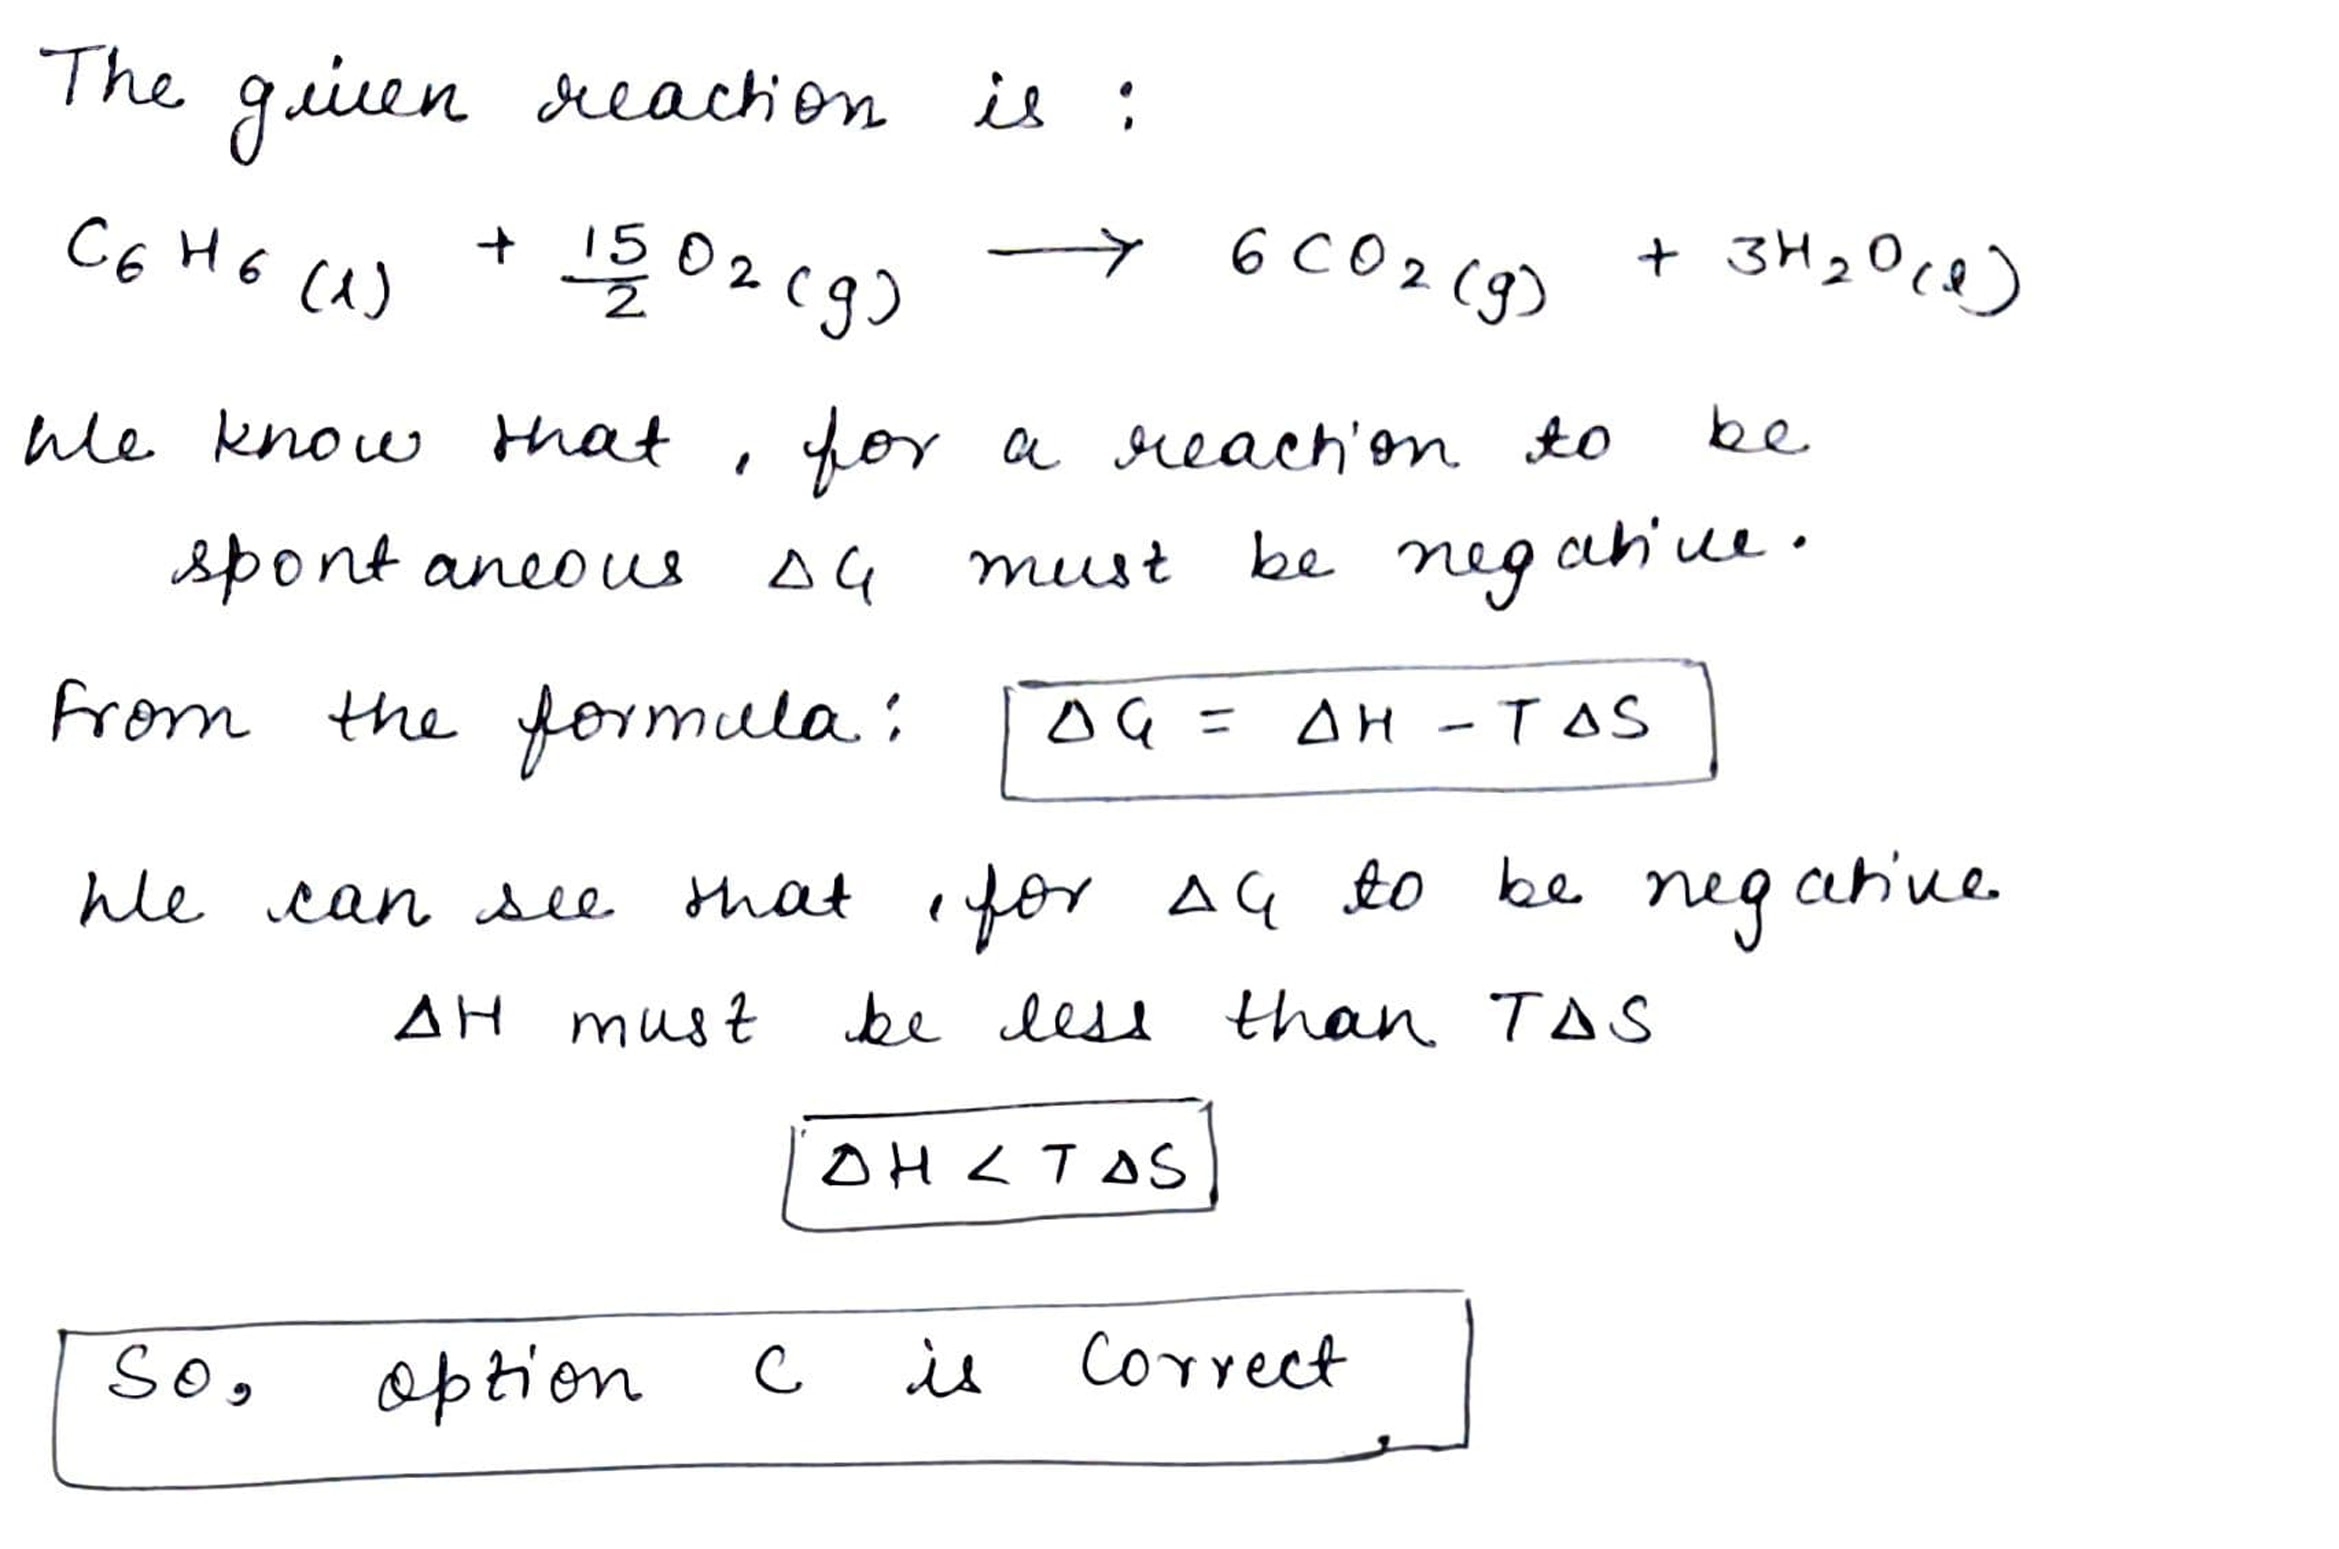 The given reaction is :
C6H6(l) + 15/2 O2(g) → 6CO2(g) + 3H2O(l)
We know that, for a reaction to be
spontaneous ΔG must be negative.
From the formula: ΔG = ΔH - TΔS
We can see that, for ΔG to be negative
ΔH must be less than TΔS
ΔH < TΔS
So, option C is Correct